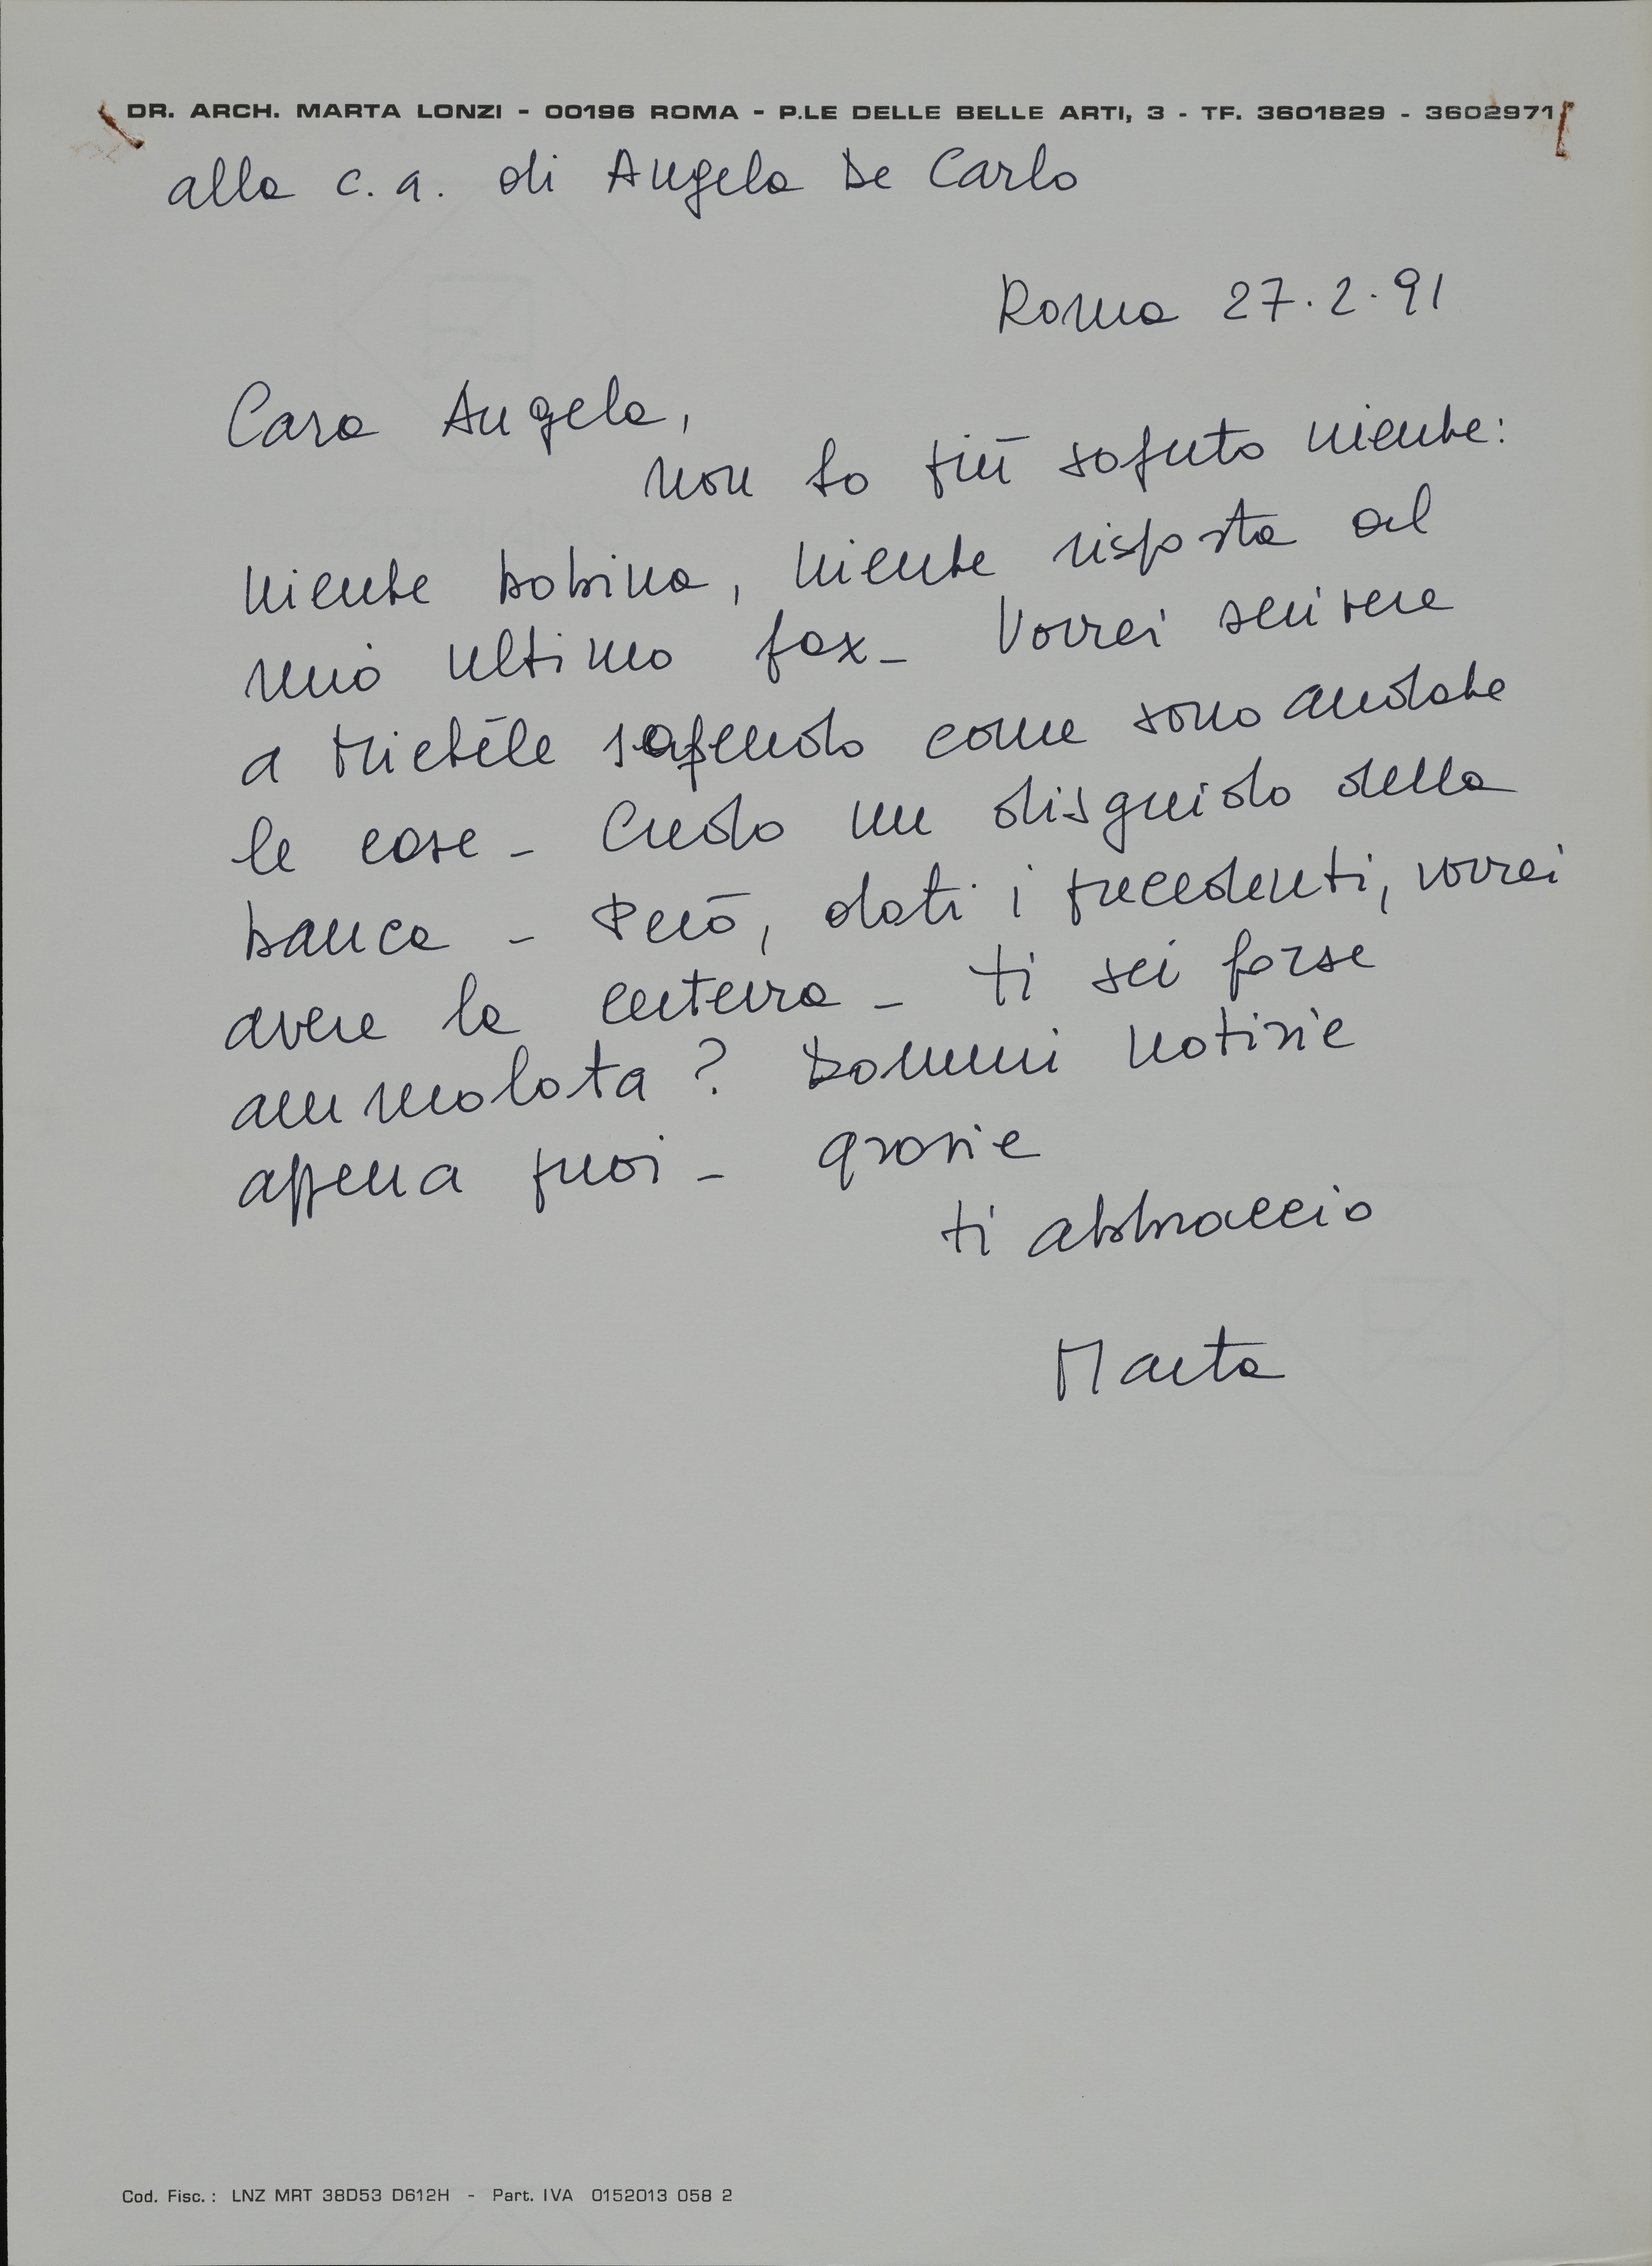 DR. ARCH. MARTA LONZI - 00196 ROMA - P.LE DELLE BELLE ARTI, 3 - TF. 3601829 - 3602971
alla c.a. di Angela De Carlo
Roma 27.2.91
Cara Angela,
non ho più saputo niente:
niente bobina, niente risposta al
mio ultimo fax - Vorrei scrivere
a Michèle sapendo come sono andate
le cose - Credo un disguido della
banca - Però, dati i precedenti, vorrei
avere la certezza - ti sei forse
ammalata? Dammi notizie
appena puoi - grazie
ti abbraccio
Marta
Cod. Fisc.: LNZ MRT 38D53 D612H - Part. IVA 0152013 058 2